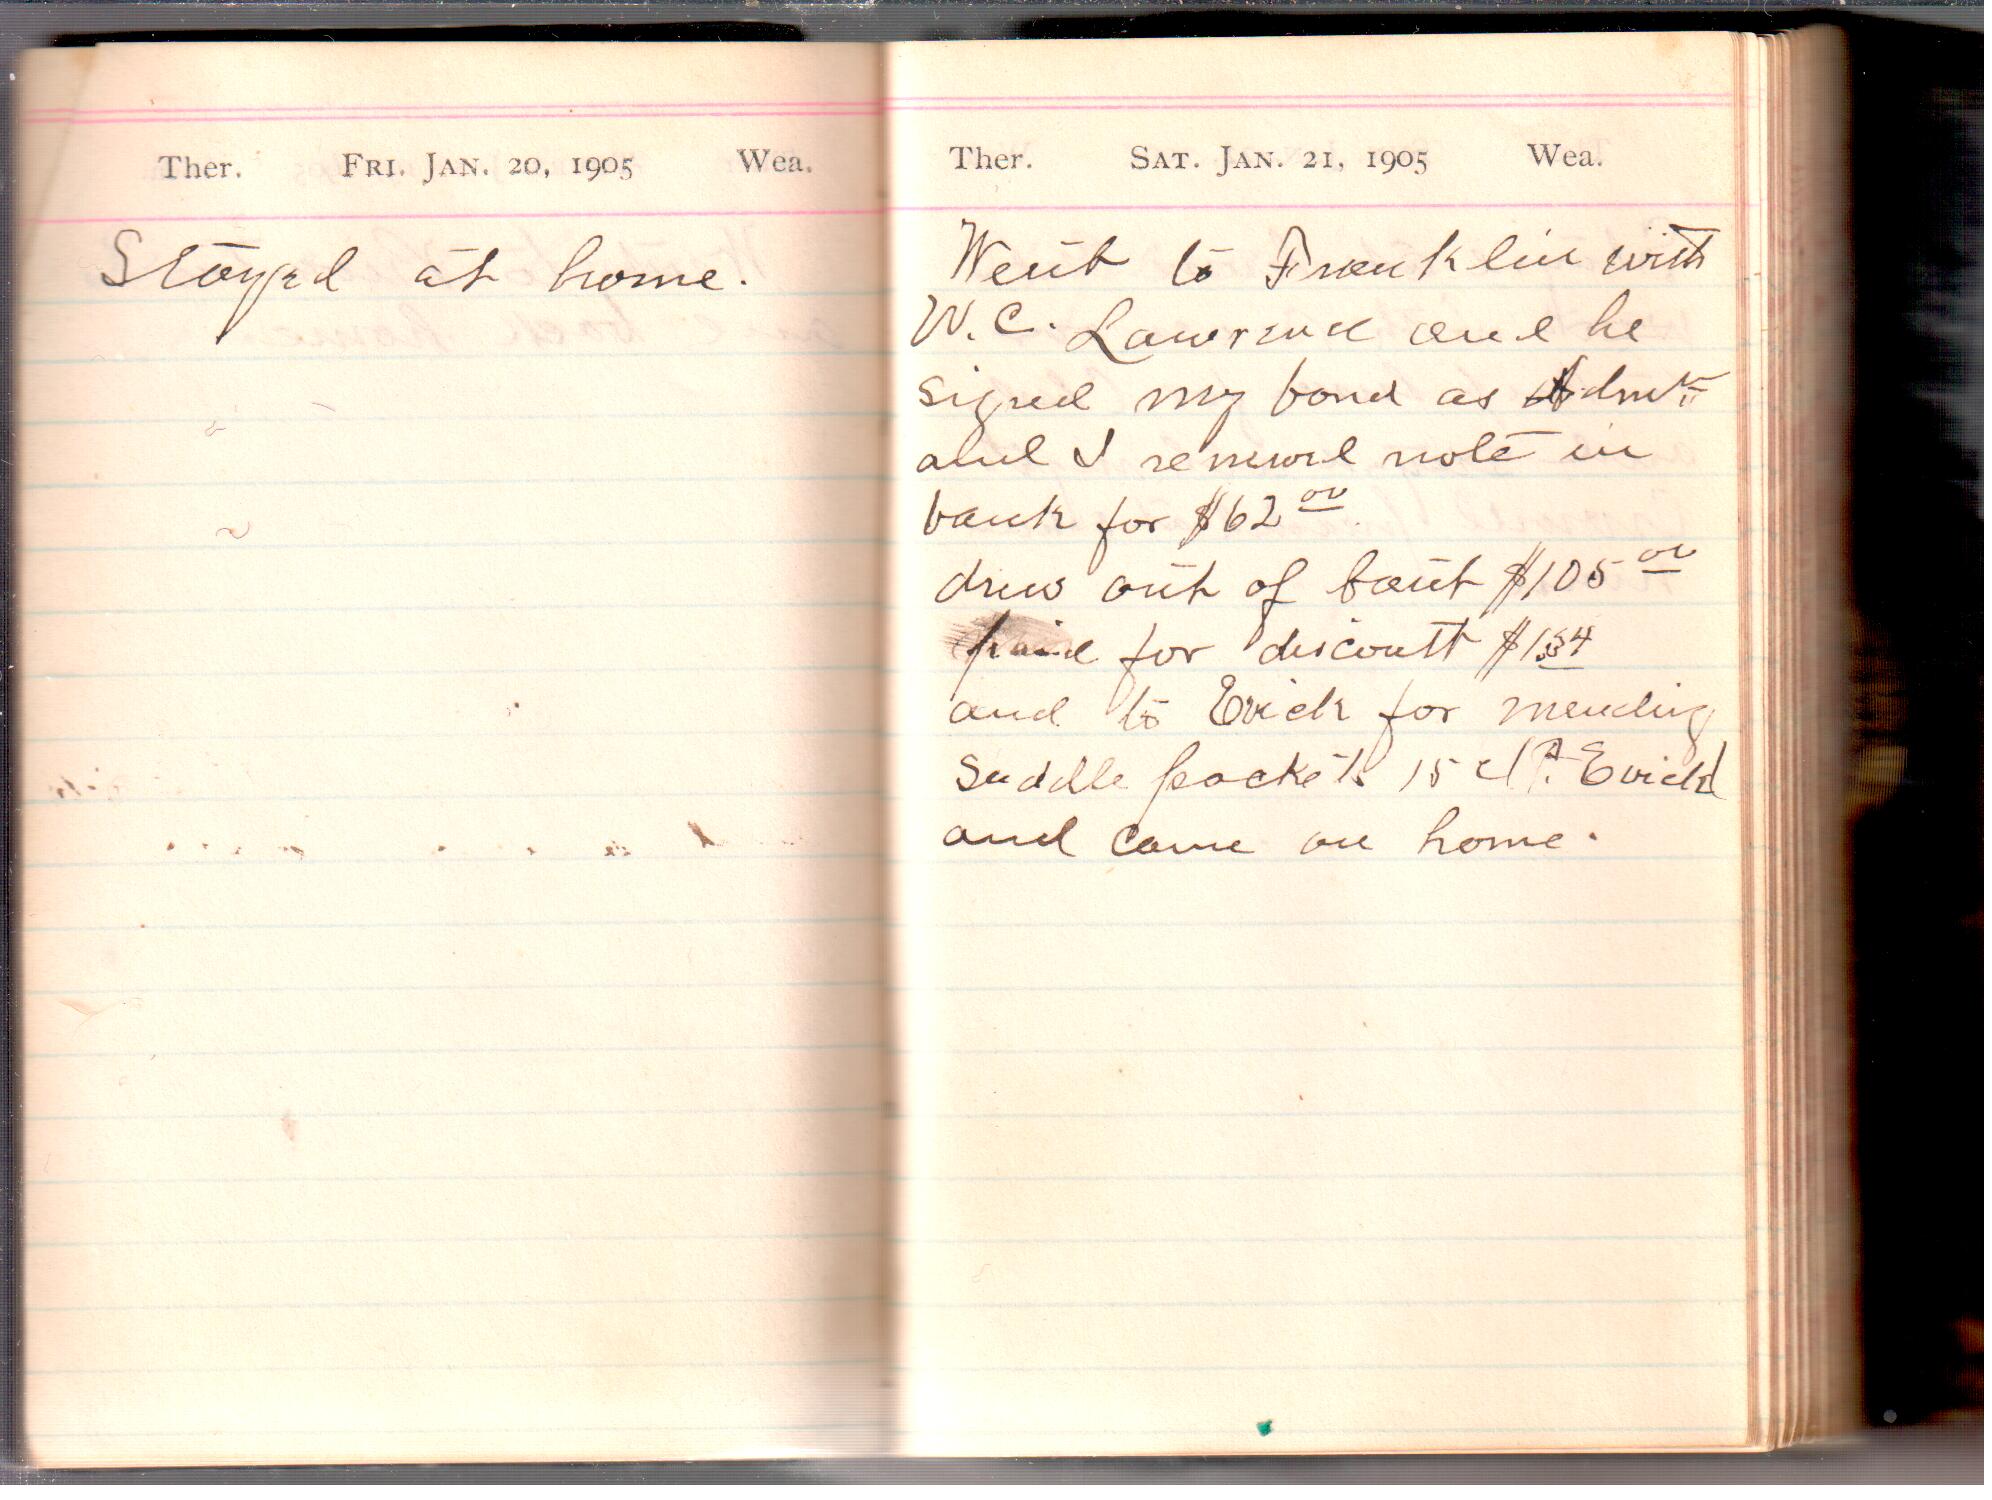 Ther. FRI. JAN. 20, 1905 Wea.
Stayed at home.
Ther. SAT. JAN. 21, 1905 Wea.
Went to Franklin with
W. C. Lawrence and he
signed my bond as Admr.
and I renewed note in
bank for $62 00
drew out of bank $105 00
paid for discount
and to Evick for mending
saddle pockets 15 ct. Evick
and came on home.